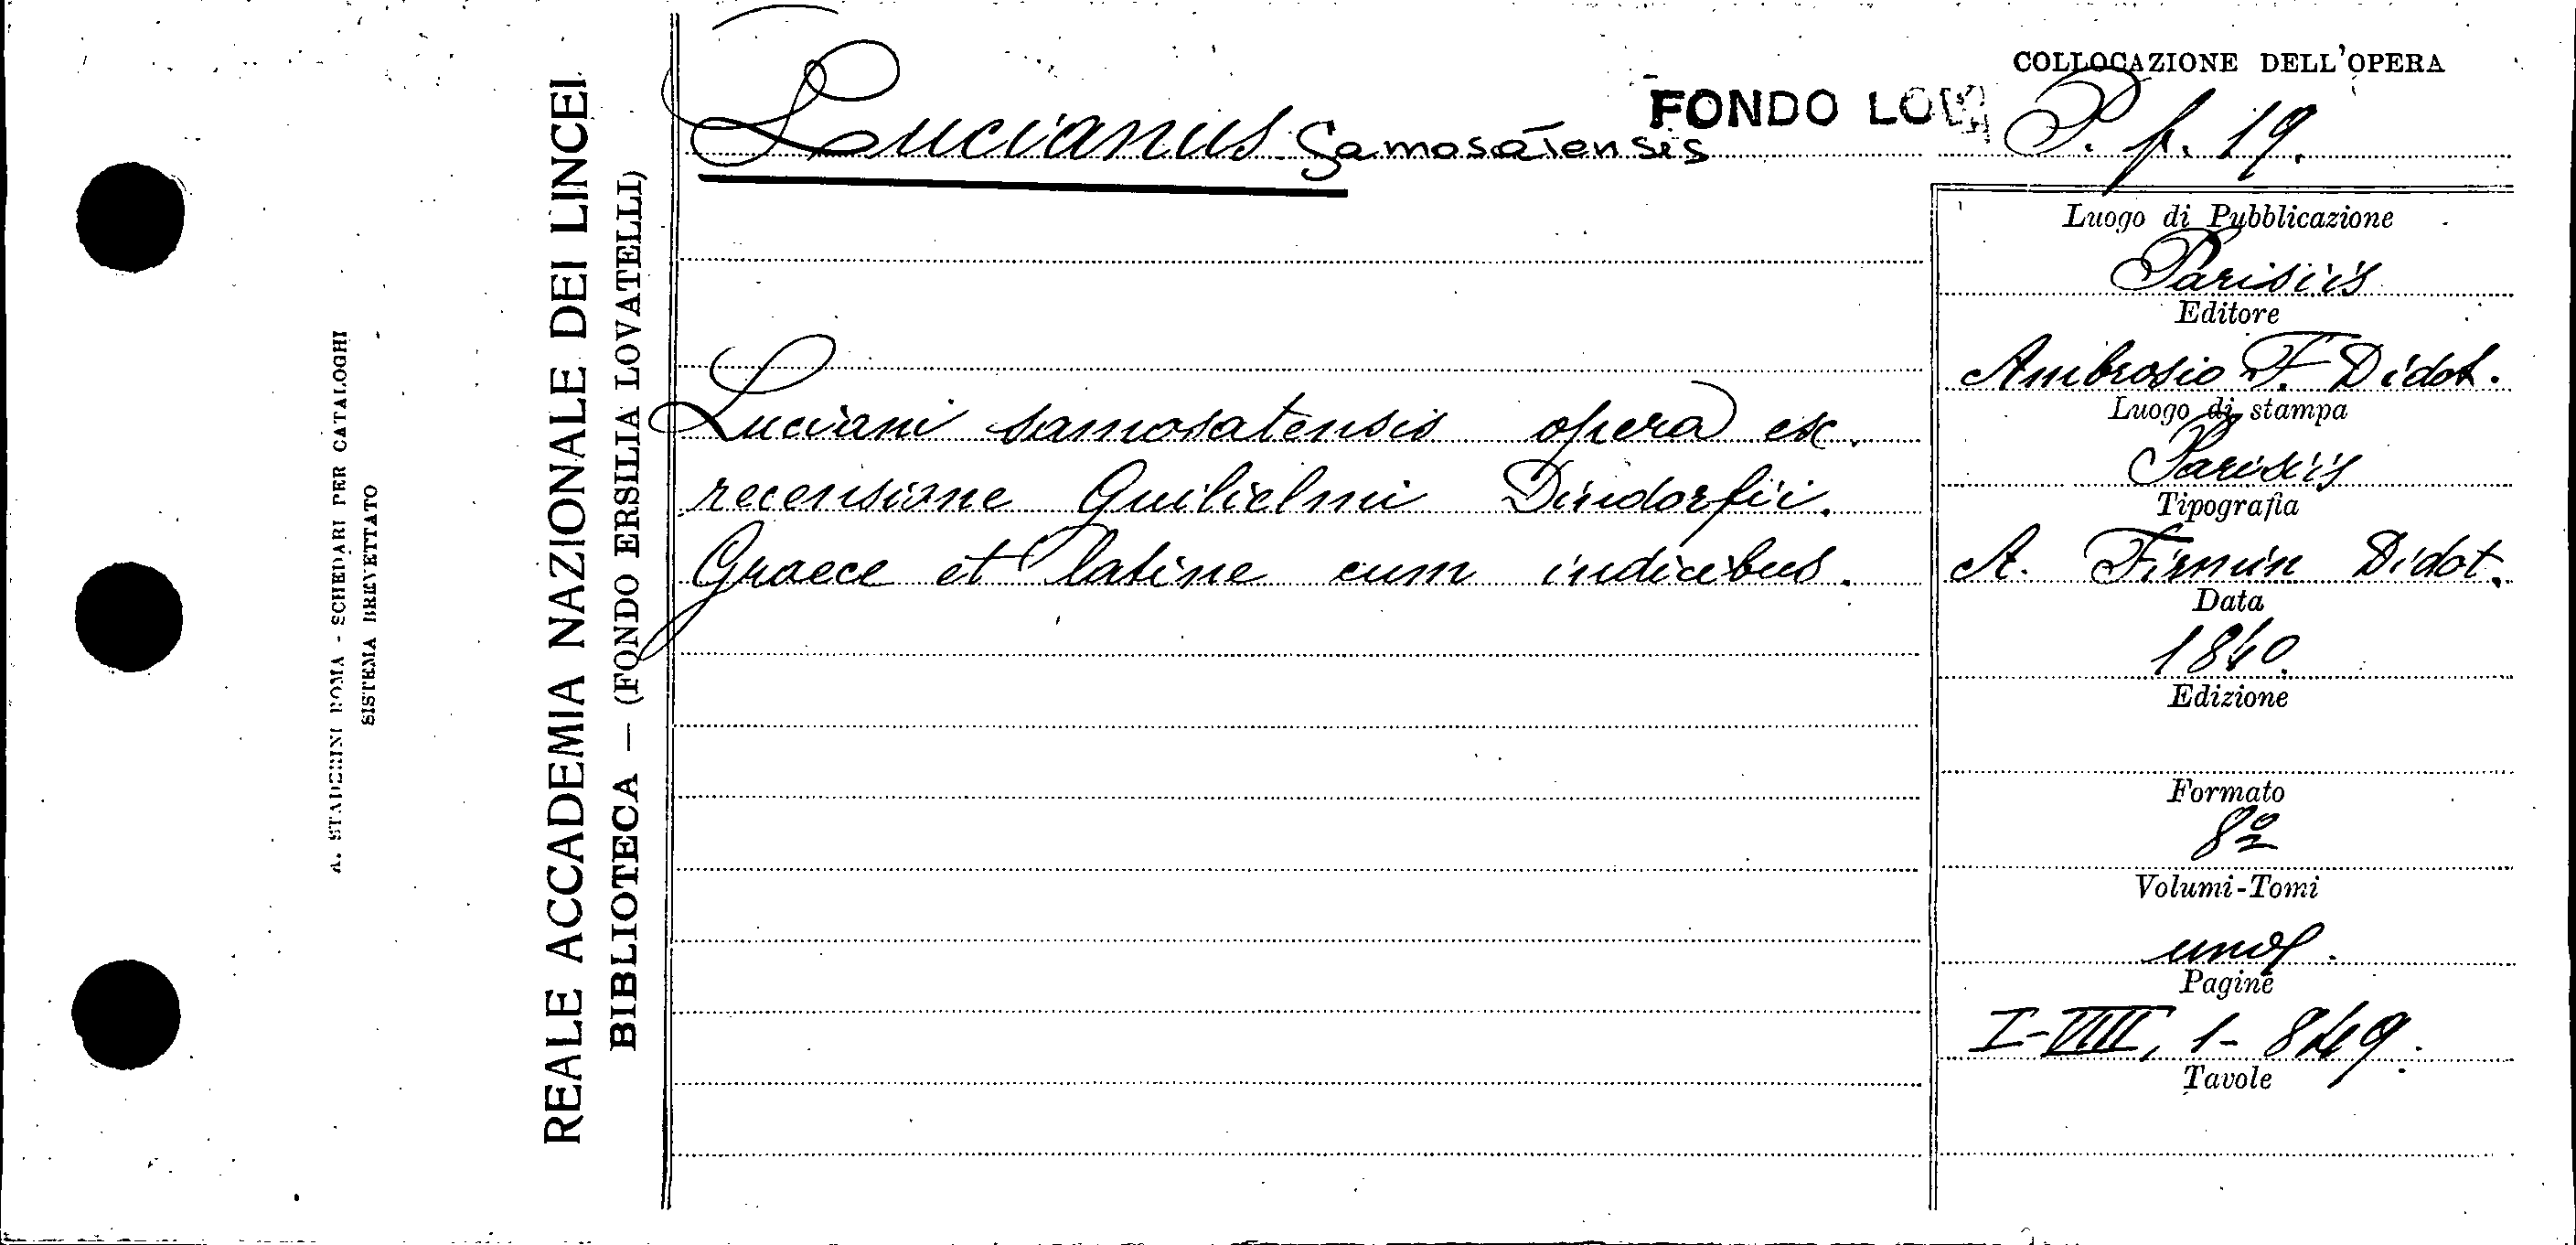 A. STADERINI ROMA - SCHEDARI PER CATALOGHI
SISTEMA BREVETTATO
REALE ACCADEMIA NAZIONALE DEI LINCEI
BIBLIOTECA — (FONDO ERSILIA LOVATELLI)
Lucianus Samosatensis
FONDO
Luciani samosatensis opera ex
recensione Guilielmi Dindorfii.
Graece et latine cum indicibus.
COLLOCAZIONE DELL'OPERA
P. p. 19.
Luogo di Pubblicazione
Parisiis
Editore
Ambrosio F. Didot.
Luogo di stampa
Parisiis
Tipografia
A. Firmin Didot.
Data
1840.
Edizione
Formato
8º
Volumi-Tomi
uno.
Pagine
I-VIII, 1-849.
Tavole